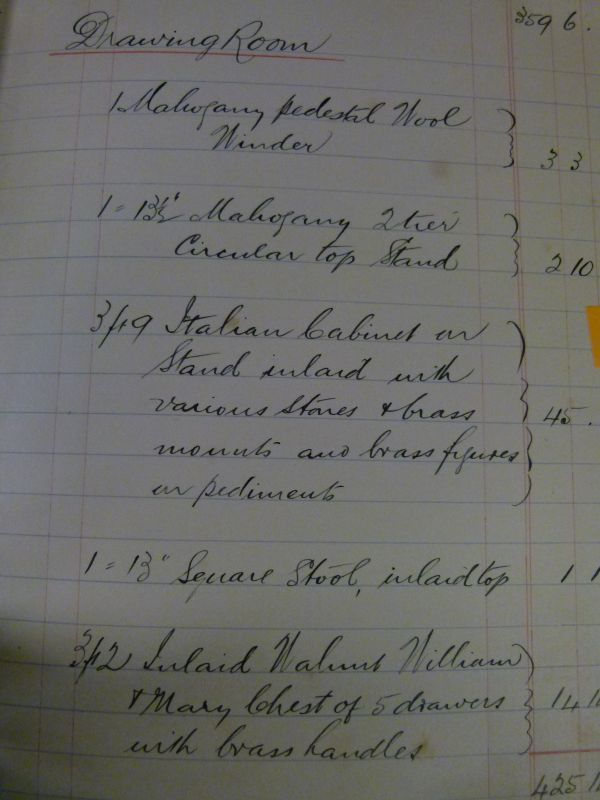 359 6.
Drawing Room
1 Mahogany pedestal Wool
Winder 3 3
1 = 13½" Mahogany 2 tier
Circular top Stand 2 10
3ft9 Italian Cabinet on
Stand inlaid with
various Stones & brass 45.
mounts and brass figures
on pediments
1 = 13" Square Stool, inlaid top 1 1
3ft2 Inlaid Walnut William
& Mary Chest of 5 drawers 14
with brass handles
425